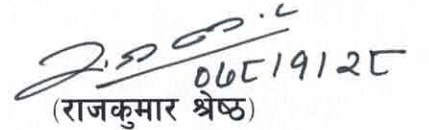 ०७८।९।२८
(राजकुमार श्रेष्ठ)